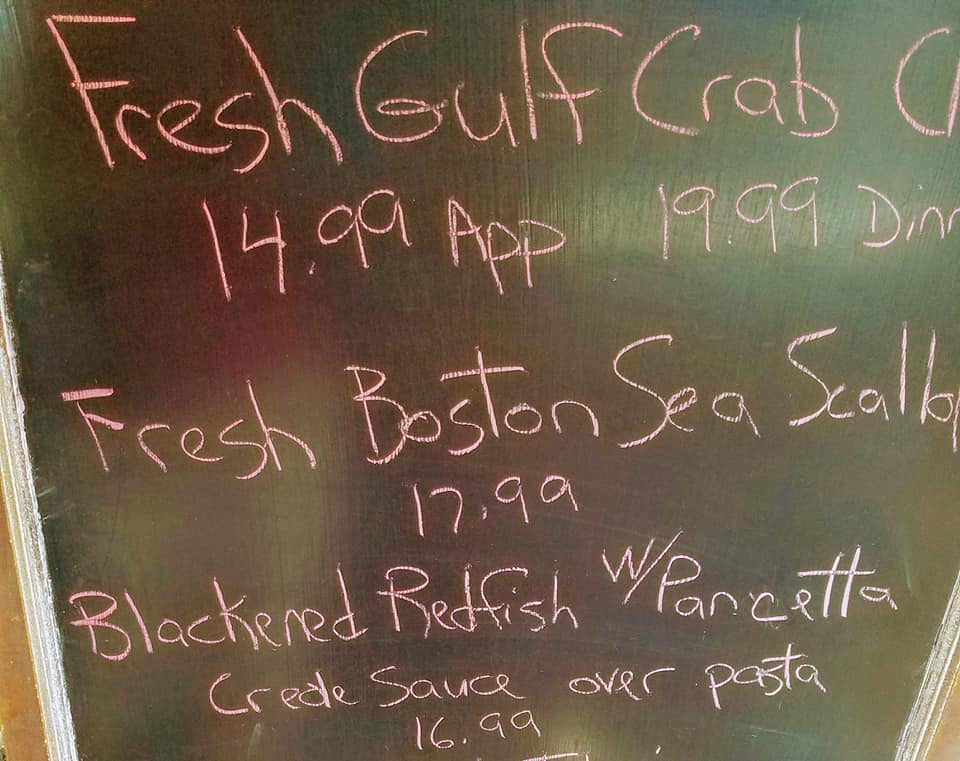 Fresh Gulf Crab C
14.99 App 19.99 Dinn
Fresh Boston Sea Scallo
17.99
Blackened Redfish w/Pancetta
Creole Sauce over pasta
16.99